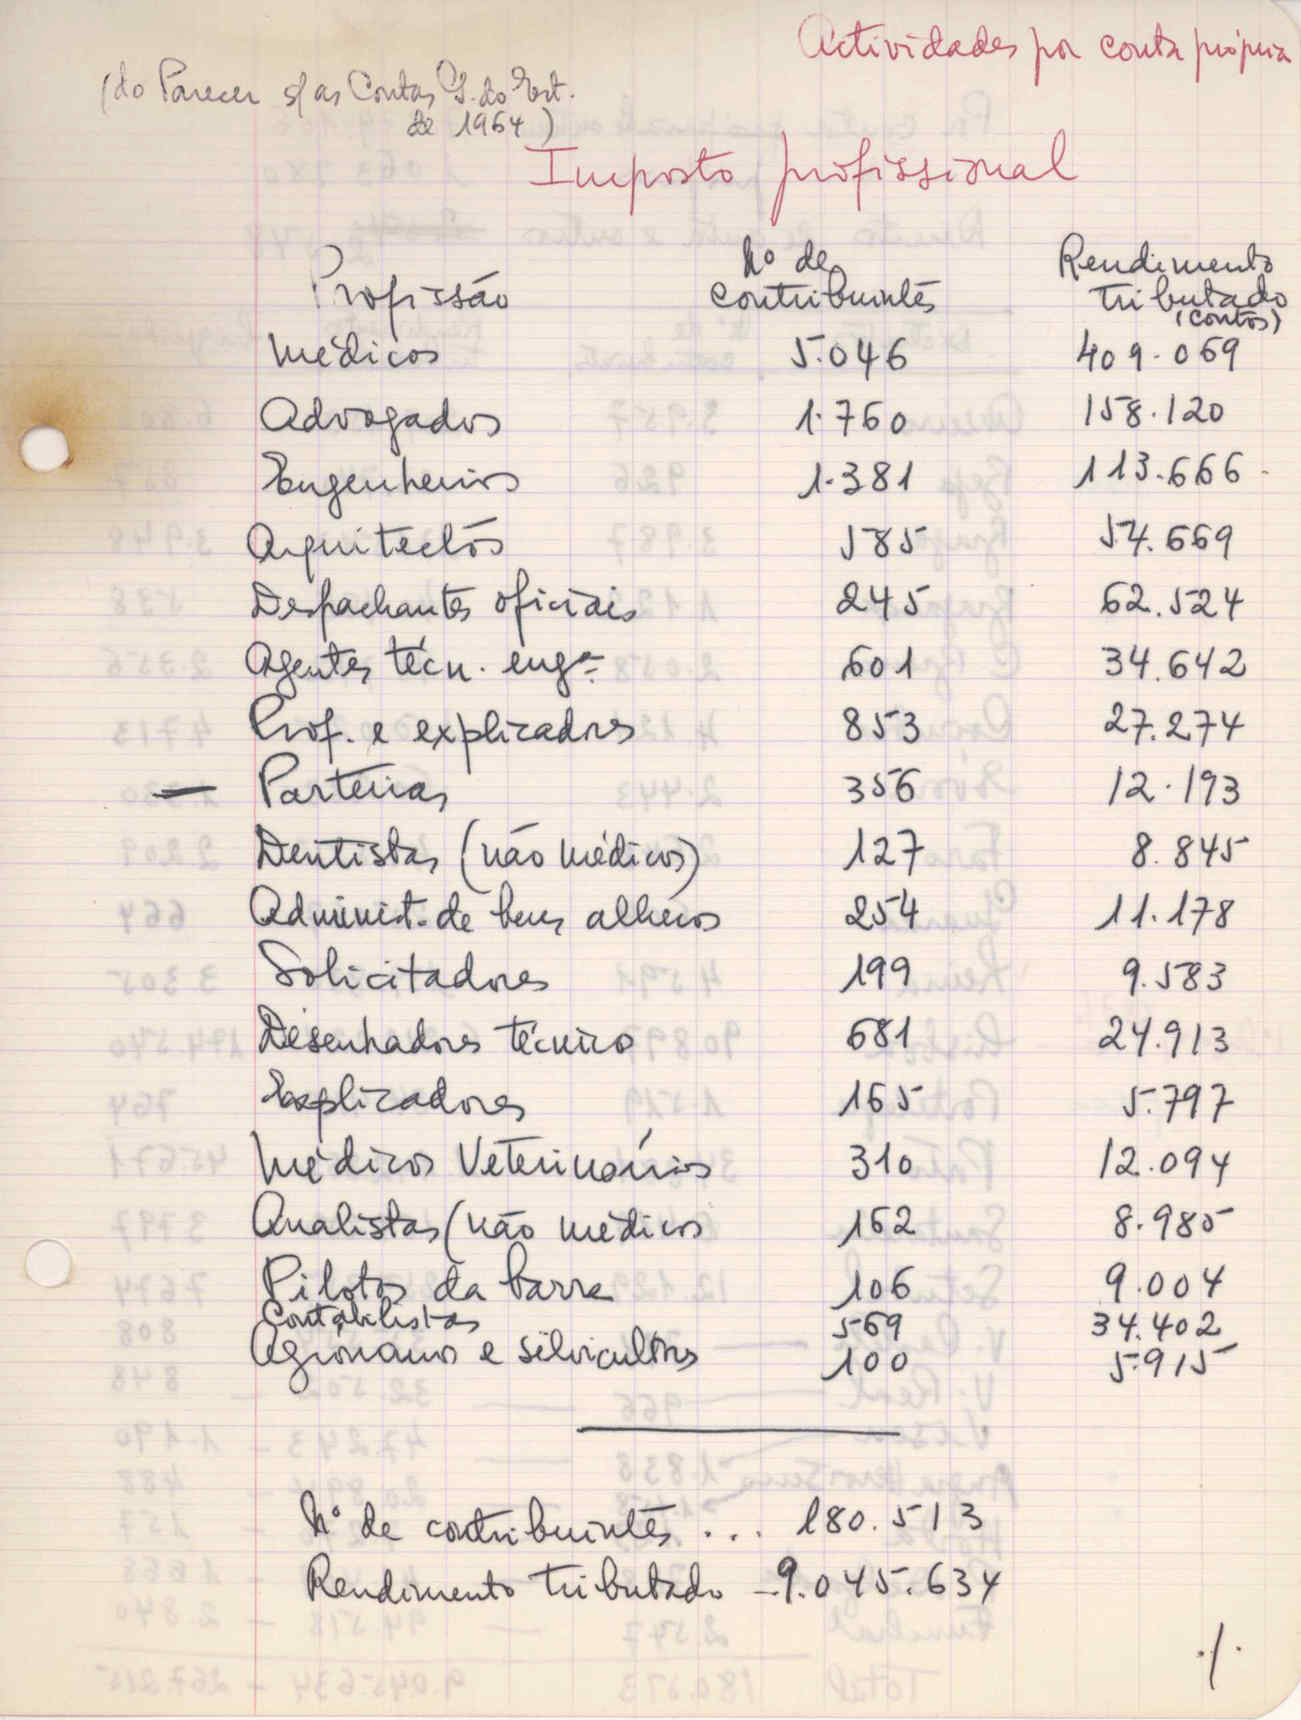 Actividades por conta própria
(do Parecer s/ as Contas G. do Est.
de 1964)
Imposto profissional
Profissão Nº de contribuintes Rendimento tributado (contos)
Médicos 5.046 409.069
Advogados 1.760 158.120
Engenheiros 1.381 113.666
Arquitectos 585 54.669
Despachantes oficiais 245 62.524
Agentes técn. engª 601 34.642
Prof. e explicadores 853 27.274
— Parteiras 356 12.193
Dentistas (não médicos) 127 8.845
Administ. de bens alheios 254 11.178
Solicitadores 199 9.583
Desenhadores técnico 681 24.913
Explicadores 165 5.797
Médicos Veterinários 310 12.094
Analistas (não médicos 162 8.985
Pilotos da barra 106 9.004
Contabilistas 569 34.402
Agrónomos e silvicultores 100 5.915
Nº de contribuintes ... 180.513
Rendimento tributado – 9.045.634
./.